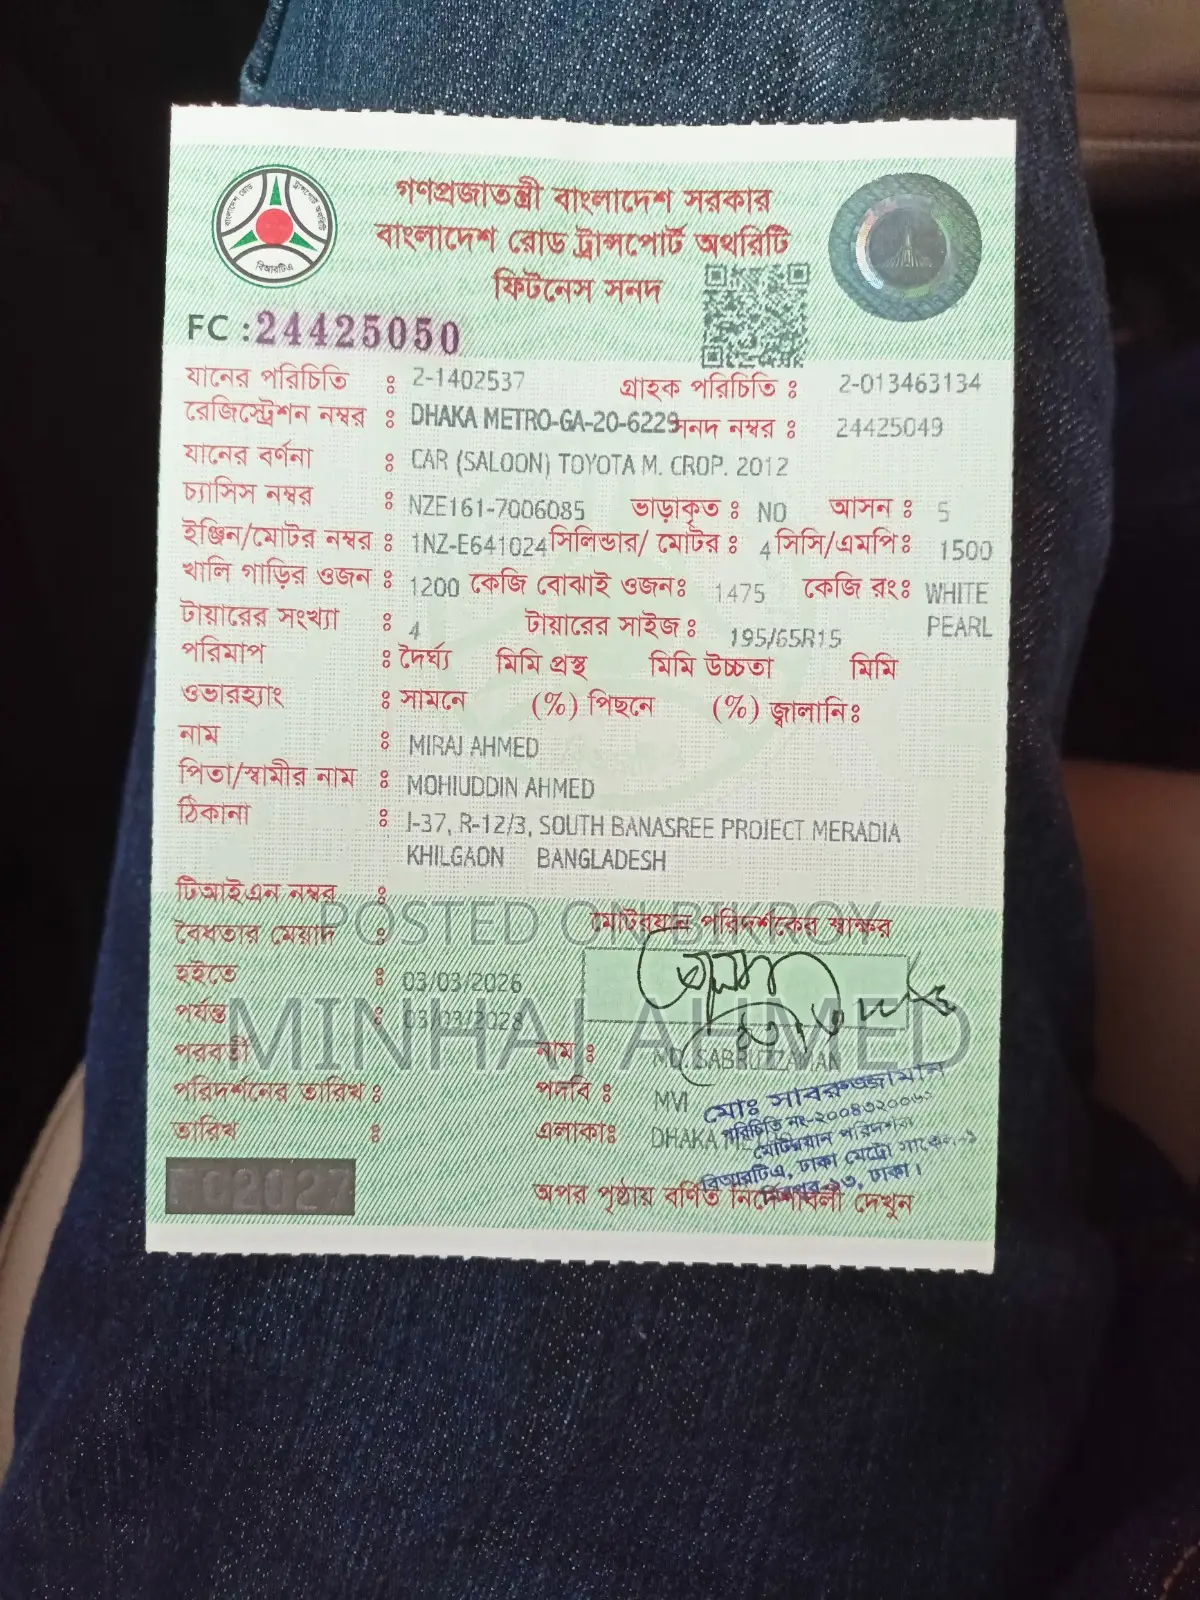 গণপ্রজাতন্ত্রী বাংলাদেশ সরকার
বাংলাদেশ রোড ট্রান্সপোর্ট অথরিটি
ফিটনেস সনদ
বিআরটিএ
FC : 24425050
যানের পরিচিতি : 2-1402537 গ্রাহক পরিচিতি : 2-013463134
রেজিস্ট্রেশন নম্বর : DHAKA METRO-GA-20-6229 সনদ নম্বর : 24425049
যানের বর্ণনা : CAR (SALOON) TOYOTA M. CROP. 2012
চ্যাসিস নম্বর : NZE161-7006085 ভাড়াকৃত : NO আসন : 5
ইঞ্জিন/মোটর নম্বর : 1NZ-E641024 সিলিন্ডার/ মোটর : 4 সিসি/এমপি: 1500
খালি গাড়ির ওজন : 1200 কেজি বোঝাই ওজন: 1475 কেজি রং: WHITE PEARL
টায়ারের সংখ্যা : 4 টায়ারের সাইজ : 195/65R15
পরিমাপ : দৈর্ঘ্য মিমি প্রস্থ মিমি উচ্চতা মিমি
ওভারহ্যাং : সামনে (%) পিছনে (%) জ্বালানি:
নাম : MIRAJ AHMED
পিতা/স্বামীর নাম : MOHIUDDIN AHMED
ঠিকানা : J-37, R-12/3, SOUTH BANASREE PROJECT MERADIA
KHILGAON BANGLADESH
টিআইএন নম্বর :
POSTED ON BIKROY
বৈধতার মেয়াদ : মোটরযান পরিদর্শকের স্বাক্ষর
হইতে : 03/03/2026
পর্যন্ত : 03/03/2028
MINHAJ AHMED
পরবর্তী নাম : MD. SABRUZZAMAN
পরিদর্শনের তারিখ : পদবি : MVI
তারিখ : এলাকা: DHAKA
মোঃ সাবরুজ্জামান
মোটরযান পরিদর্শক
বিআরটিএ, ঢাকা মেট্রো সার্কেল-১
ঢাকা।
FC2027
অপর পৃষ্ঠায় বর্ণিত নির্দেশাবলী দেখুন